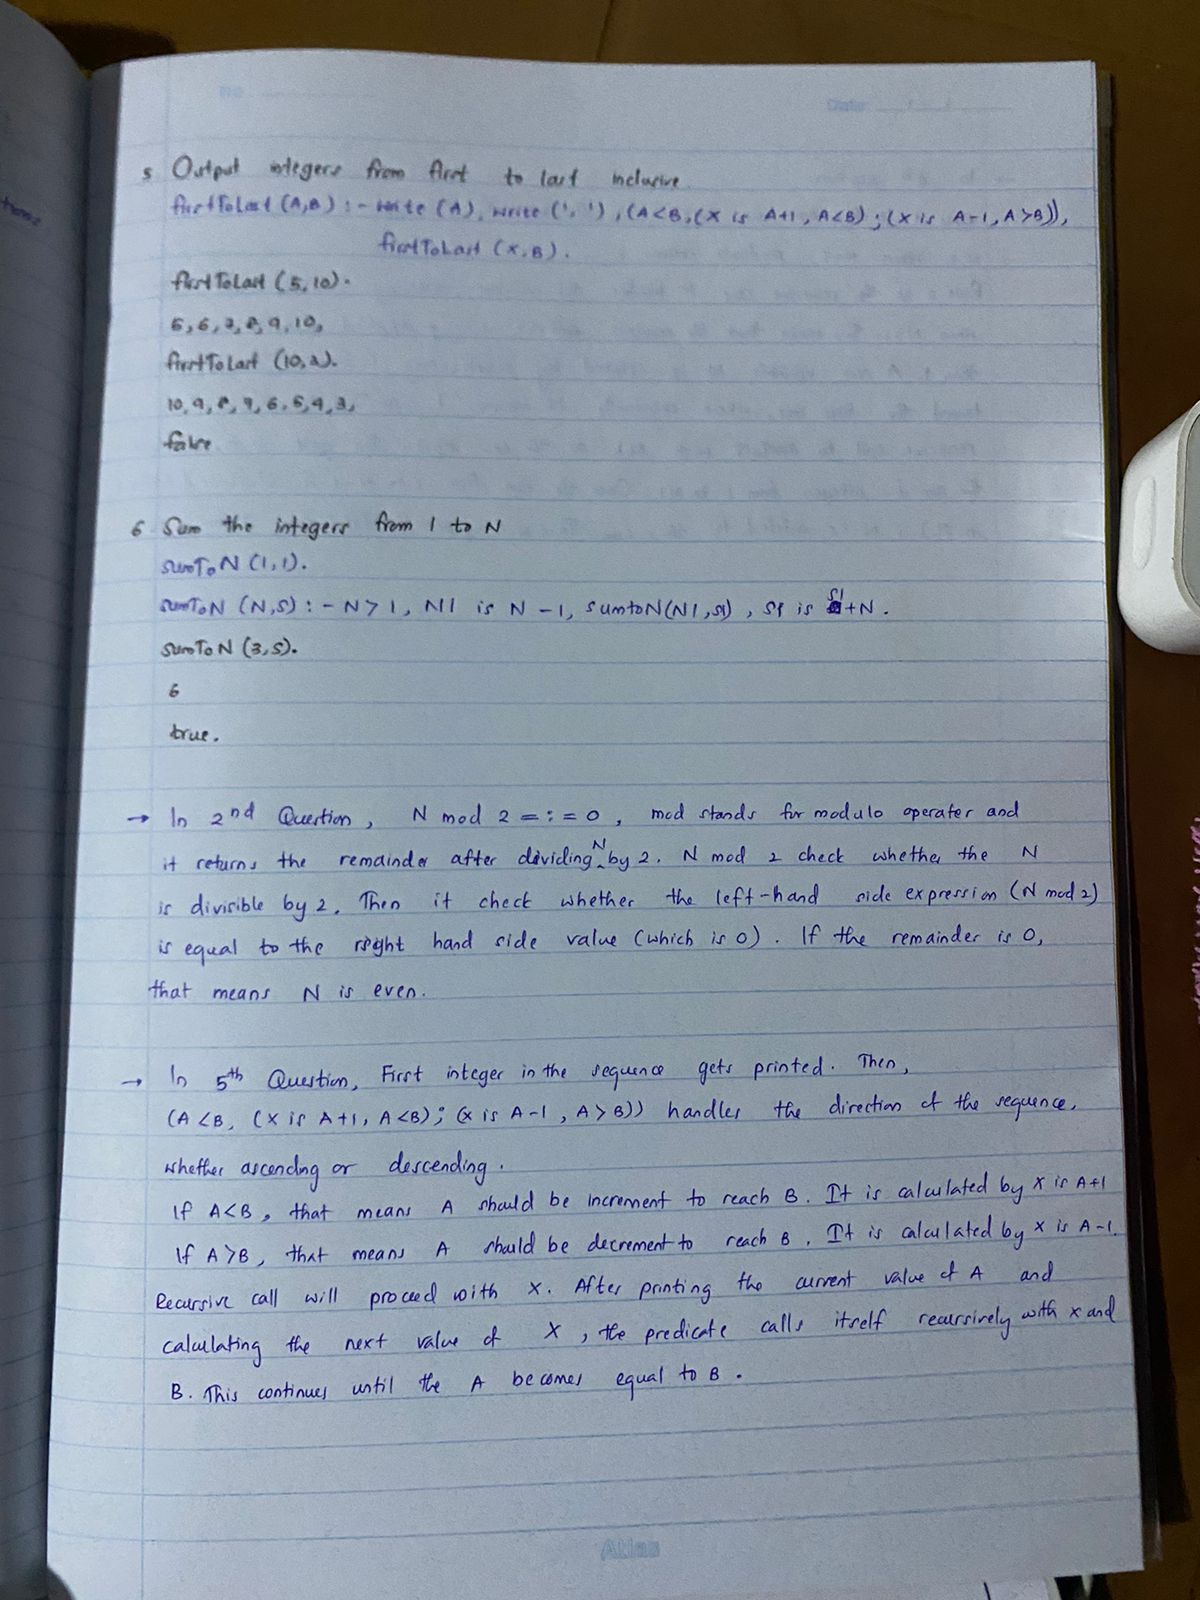 No
Date
5 Output integers from first to last inclusive
firstToLast (A,B) :- write (A), write (', '), (A<B,(X is A+1, A<B) ; (X is A-1, A>B)),
firstToLast (X,B).
firstToLast (5,10).
5,6,7,8,9,10,
firstToLast (10,2).
10,9,8,7,6,5,4,3,
false
6 Sum the integers from 1 to N
sumToN (1,1).
sumToN (N,S) :- N>1, N1 is N-1, sumtoN(N1,S1), S1 is S1+N.
sumToN (3,S).
6
true.
→ In 2nd Question, N mod 2 =:= 0, mod stands for modulo operater and
it returns the remainder after dividing N by 2. N mod 2 check whether the N
is divisible by 2. Then it check whether the left-hand side expression (N mod 2)
is equal to the right hand side value (which is 0). If the remainder is 0,
that means N is even.
→ In 5th Question, First integer in the sequence gets printed. Then,
(A<B, (X is A+1, A<B); (X is A-1, A>B)) handles the direction of the sequence,
whether ascending or descending.
If A<B, that means A should be increment to reach B. It is calculated by X is A+1
If A>B, that means A should be decrement to reach B. It is calculated by X is A-1.
Recursive call will proceed with X. After printing the current value of A and
calculating the next value of X, the predicate calls itself recurrsively with X and
B. This continues until the A becomes equal to B.
Atlas